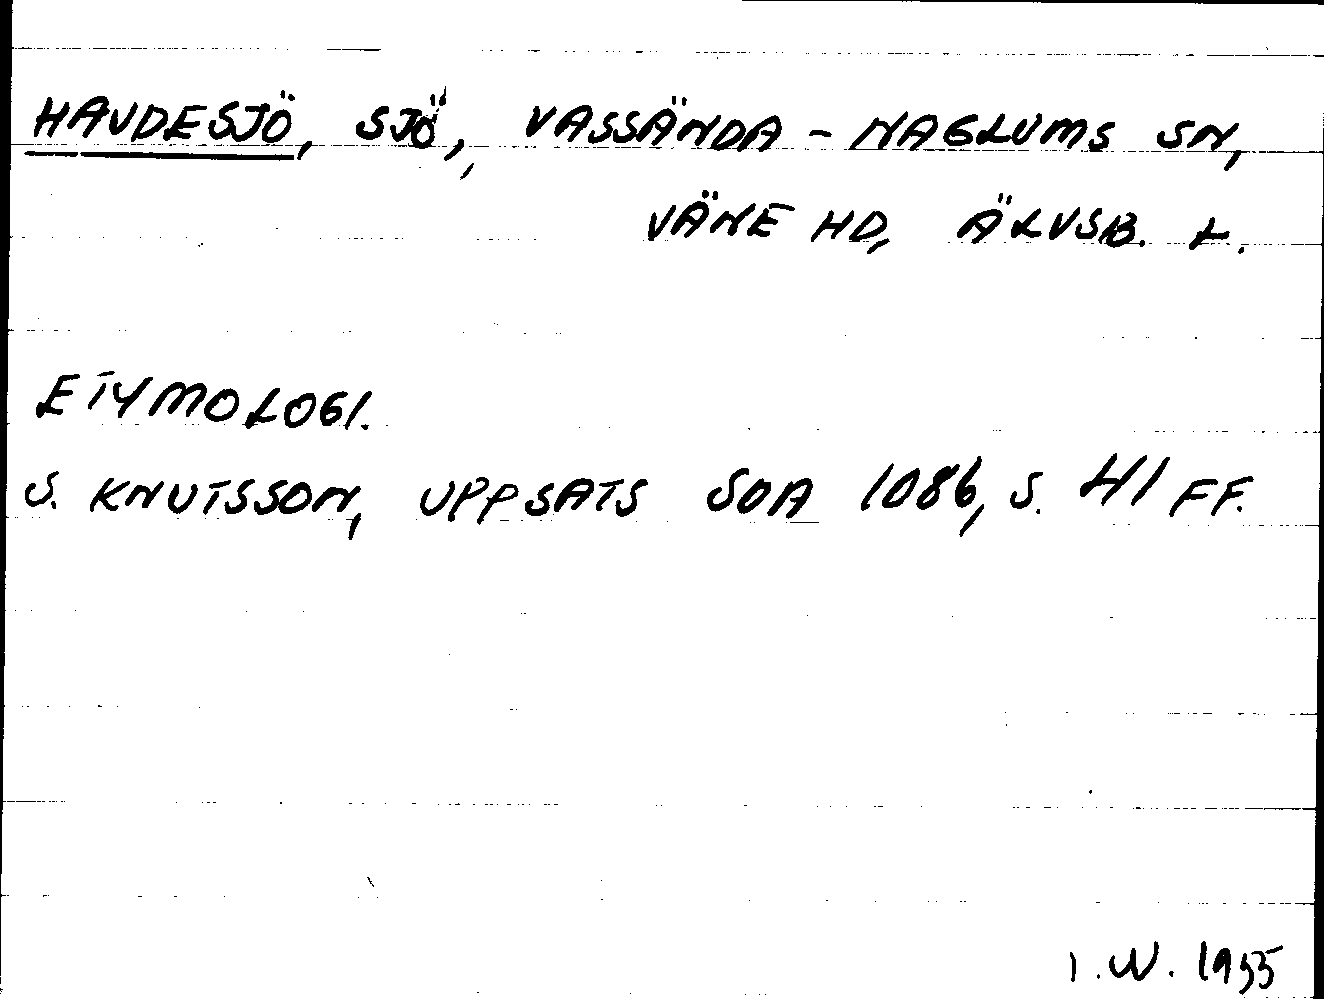 HAVDESJÖ, SJÖ, VASSÄNDA - NAGLUMS SN,
VÄNE HD, ÄLVSB. L.
ETYMOLOGI.
S. KNUTSSON, UPPSATS SOA 1086, S. 41 FF.
I.W. 1955